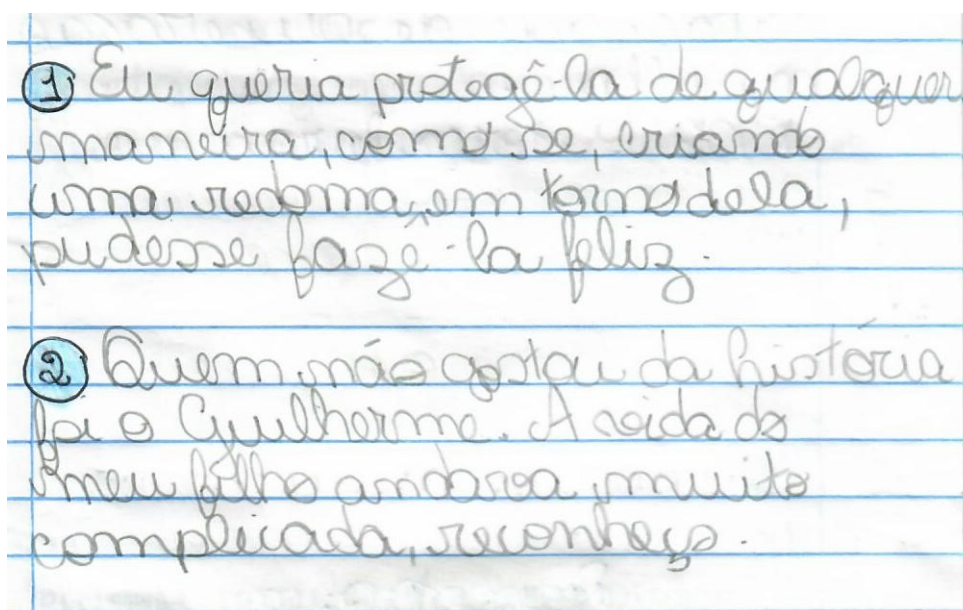 1 Eu queria protegê-la de qualquer
maneira, como se, criando
uma redoma em torno dela,
pudesse fazê-la feliz.
2 Quem não gostou da história
foi o Guilherme. A vida do
meu filho andava muito
complicada, reconheço.